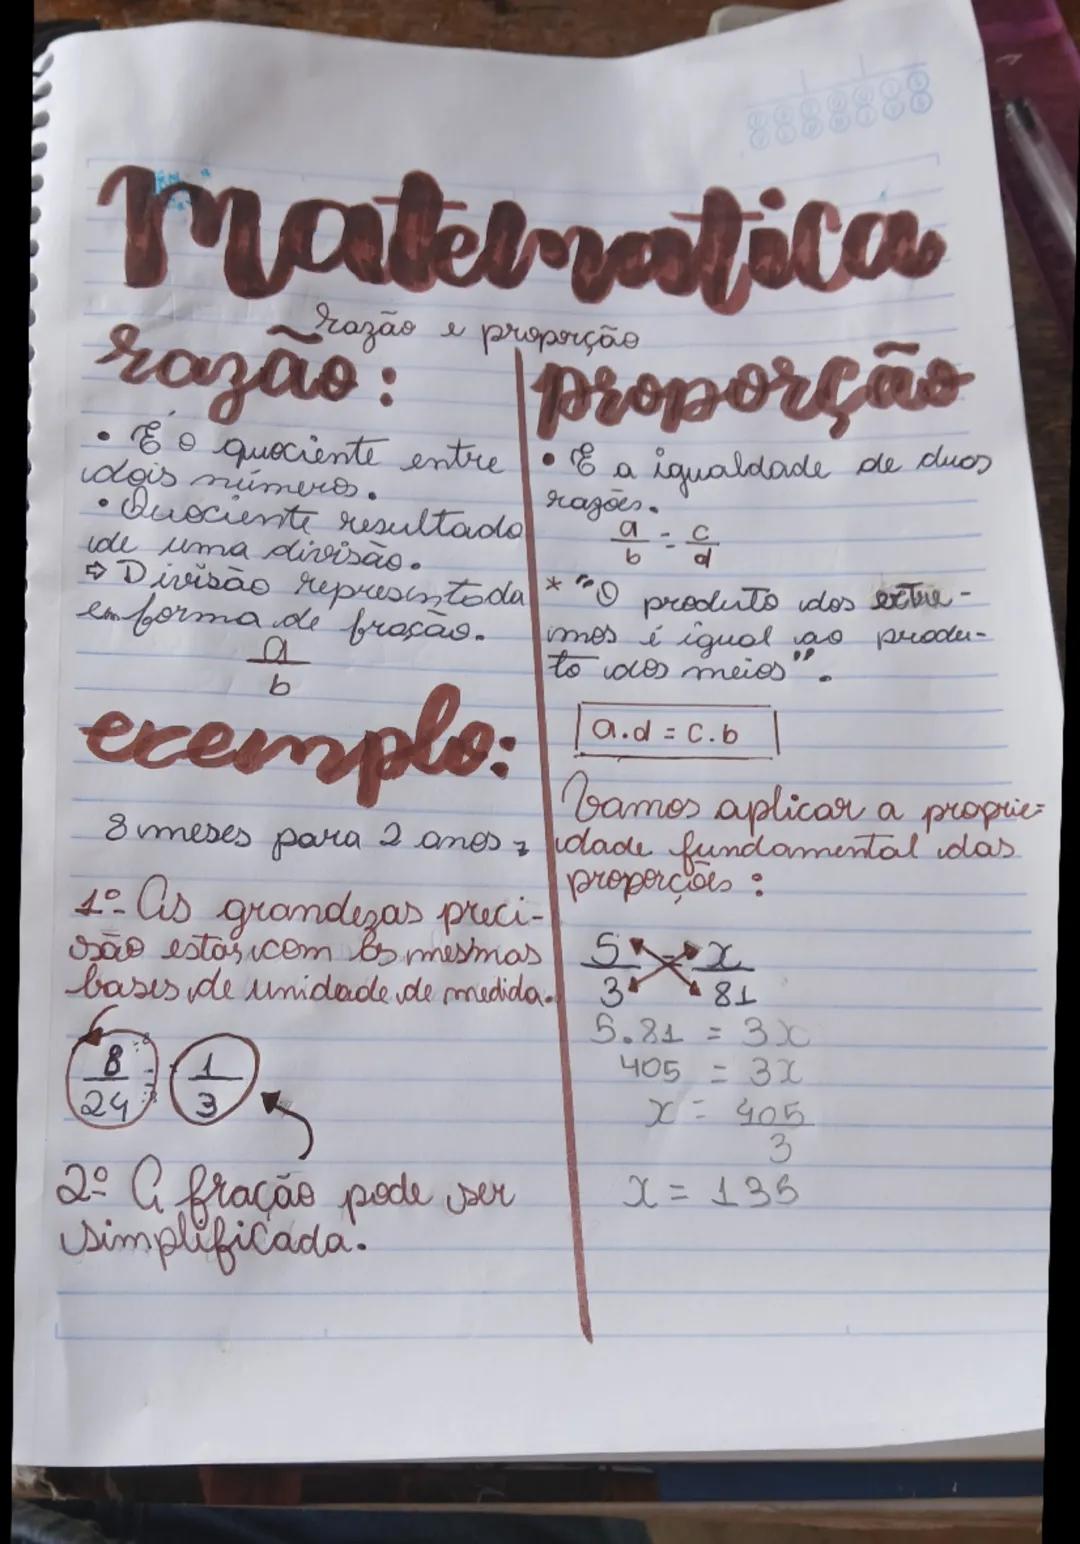 Matematica
razão e proporção
razão:
• É o quociente entre
dois números.
• Quociente resultado
de uma divisão.
⇨ Divisão representada
em forma de fração.
a
b
exemplo:
8 meses para 2 anos =
1º- As grandezas preci-
são estar com as mesmas
bases de unidade de medida.
8 :8 = 1
24 :8 3
2º A fração pode ser
simplificada.
proporção
• É a igualdade de duas
razões.
a = c
b d
* "O produto dos extre-
mos é igual ao produ-
to dos meios".
a.d = c.b
Vamos aplicar a proprie=
dade fundamental das
proporções:
5 = x
3 81
5.81 = 3x
405 = 3x
x = 405
3
x = 135